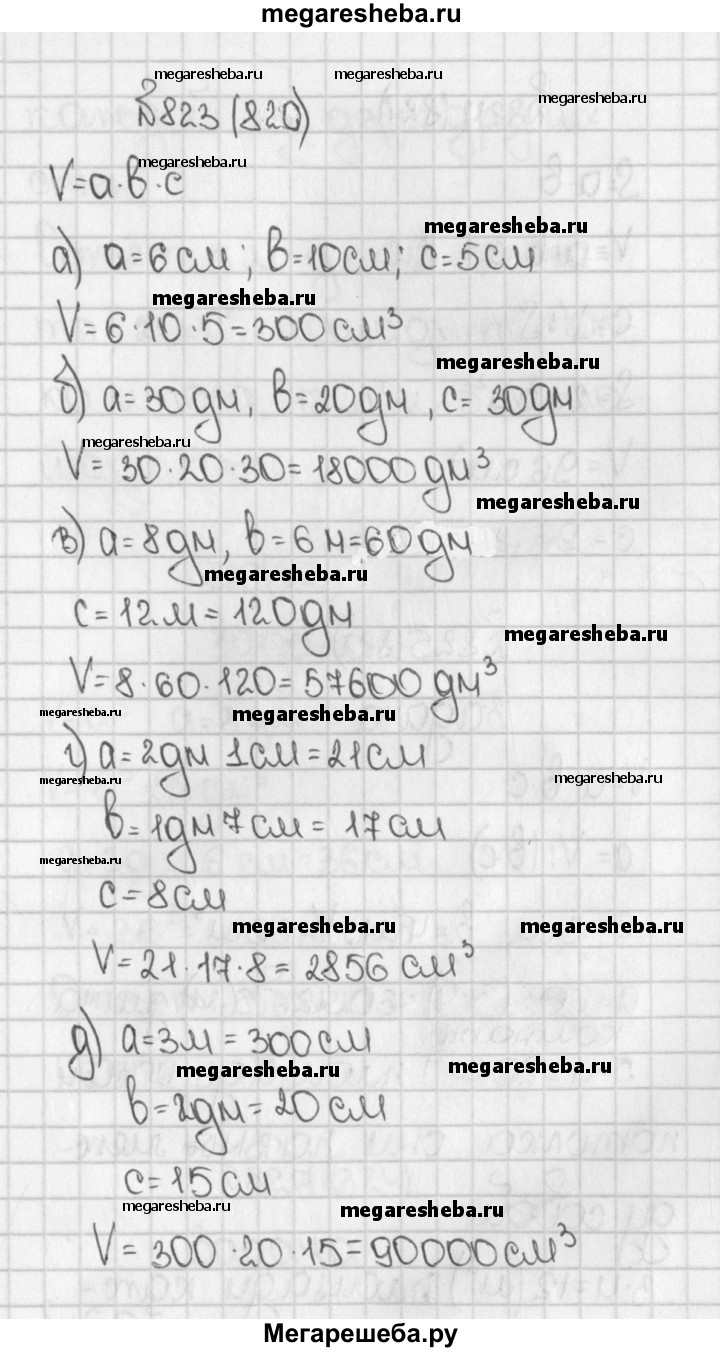 megaresheba.ru
megaresheba.ru megaresheba.ru megaresheba.ru
№823 (820)
megaresheba.ru
V=a·b·c
megaresheba.ru
а) a=6 см; b=10см; c=5см
megaresheba.ru
V=6·10·5=300 см³
megaresheba.ru
б) a=30дм, b=20дм, c= 30дм
megaresheba.ru
V= 30·20·30=18000 дм³
megaresheba.ru
в) a=8дм, b=6 м=60дм
megaresheba.ru
c=12м=120дм
megaresheba.ru
V=8·60·120=57600 дм³
megaresheba.ru megaresheba.ru
г) a=2дм 1см=21см
megaresheba.ru megaresheba.ru
b=1дм 7см= 17см
megaresheba.ru
c=8см
megaresheba.ru megaresheba.ru
V=21·17·8= 2856 см³
д) a=3м=300см
megaresheba.ru megaresheba.ru
b=2дм=20см
c=15см
megaresheba.ru megaresheba.ru
V= 300·20·15=90000см³
Мегарешеба.ру